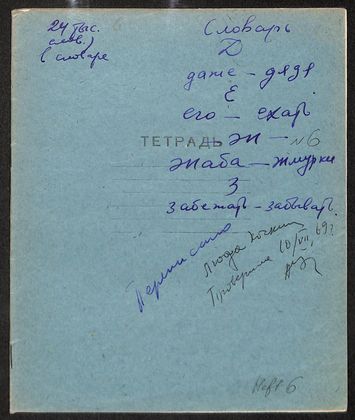 24 тыс.
слов.)
(словаре
6
Словарь
Д
даже – дядя
Е
его – ехать
ТЕТРАДЬ Ж – №6
жаба – жмурки
З
забежать – забывать.
Переписано
Люда
Проверила 10/VII, 69 г.
Heft 6